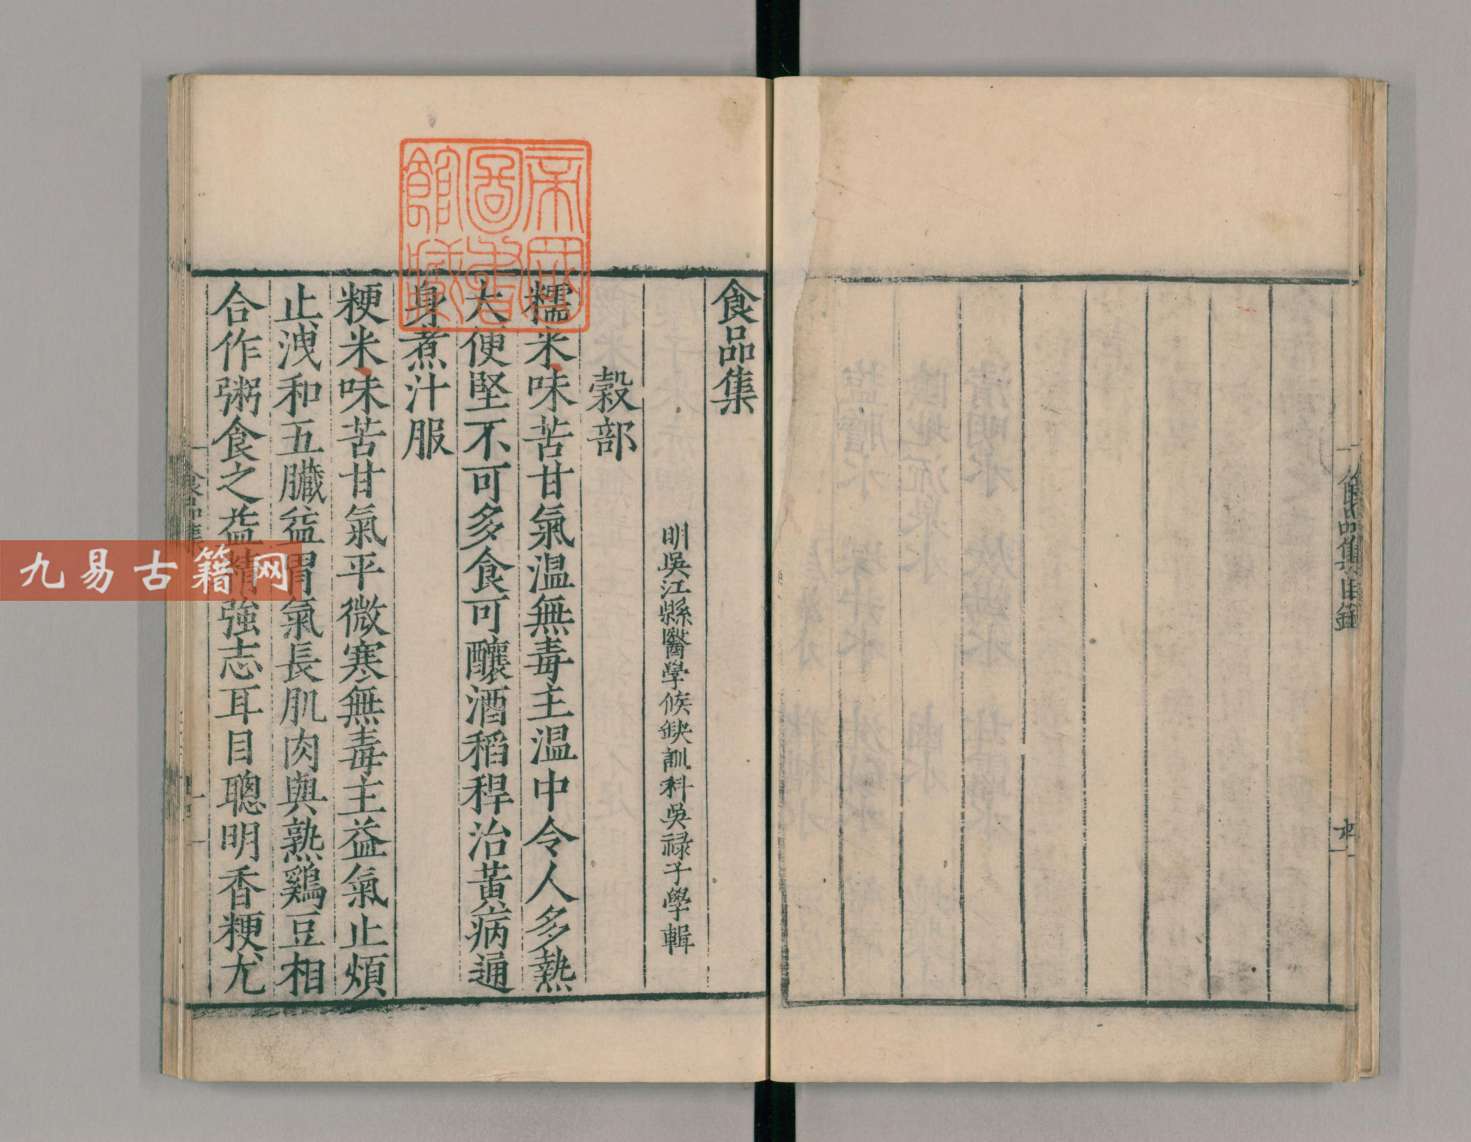 食品集
明吳江縣醫學候缺訓科吳祿子學輯
穀部
糯米味苦甘氣温無毒主温中令人多熱
大便堅不可多食可釀酒稻稈治黃病通
身煮汁服
粳米味苦甘氣平微寒無毒主益氣止煩
止洩和五臟益胃氣長肌肉與熟鷄豆相
合作粥食之益精強志耳目聰明香粳尤
食品集
食品集目錄
帝國圖書館藏
九易古籍网